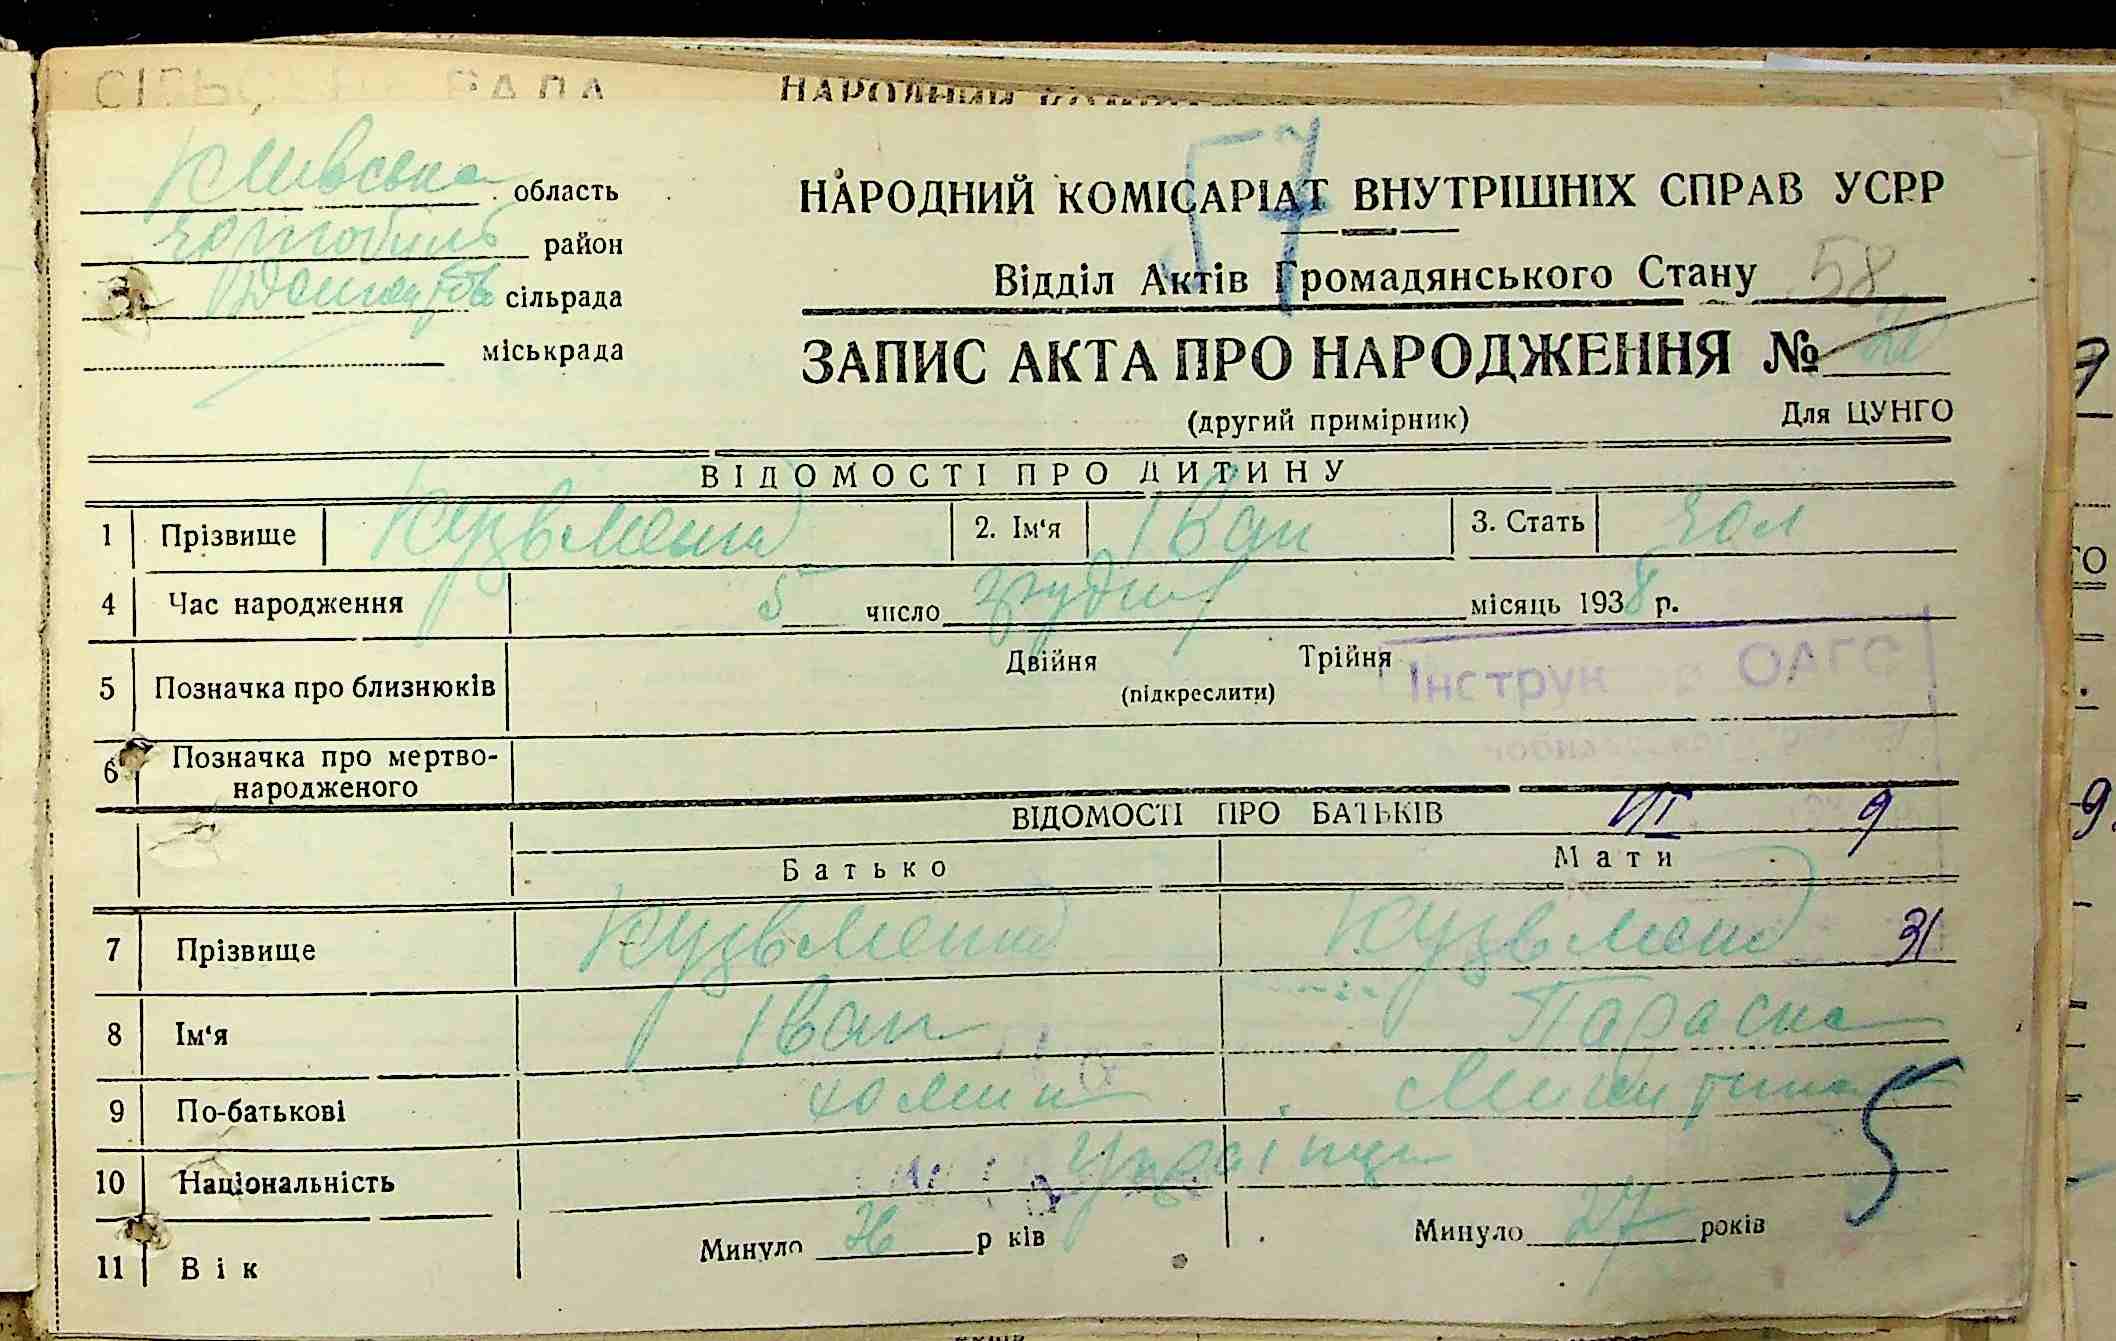 Київська область
Чорнобиль район
сільрада
міськрада
57
НАРОДНИЙ КОМІСАРІАТ ВНУТРІШНІХ СПРАВ УСРР
Відділ Актів Громадянського Стану 58
ЗАПИС АКТА ПРО НАРОДЖЕННЯ №
(другий примірник) Для ЦУНГО
ВІДОМОСТІ ПРО ДИТИНУ
1 Прізвище Кузьменко 2. Ім'я Іван 3. Стать чол
4 Час народження 5 число грудня місяць 1938 р.
5 Позначка про близнюків Двійня Трійня
(підкреслити)
Інструк ОАГС
6 Позначка про мертво-
народженого
ВІДОМОСТІ ПРО БАТЬКІВ VI 9
Батько Мати
7 Прізвище Кузьменко Кузьменко 31
8 Ім'я Іван Параска
9 По-батькові Хомич Микитівна
5
10 Національність Українці
11 Вік Минуло р ків Минуло 27 років